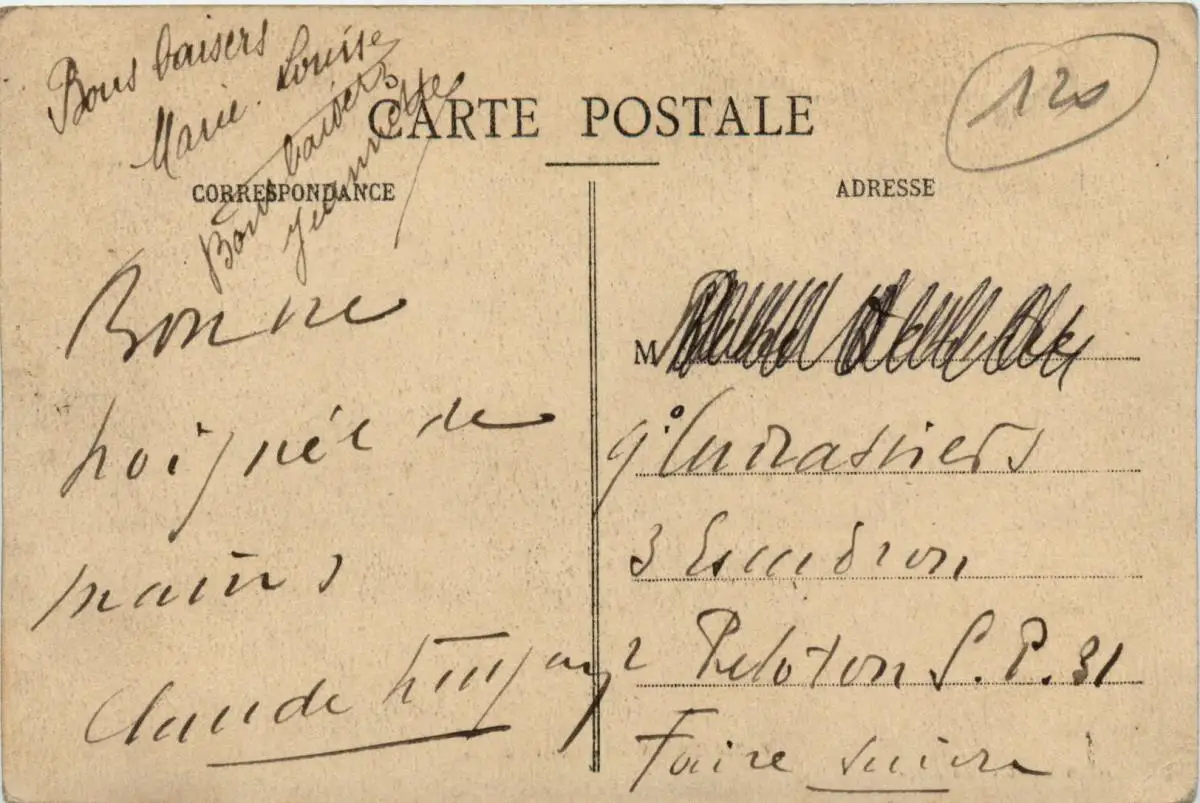 Bons baisers
Marie-Louise
Bons baisers
Jeannette
CARTE POSTALE
120
CORRESPONDANCE
ADRESSE
Bonne
poignée de
mains
Claude
M
9° Cuirassiers
3 Escadron
2 Peloton S.P. 31
Faire suivre